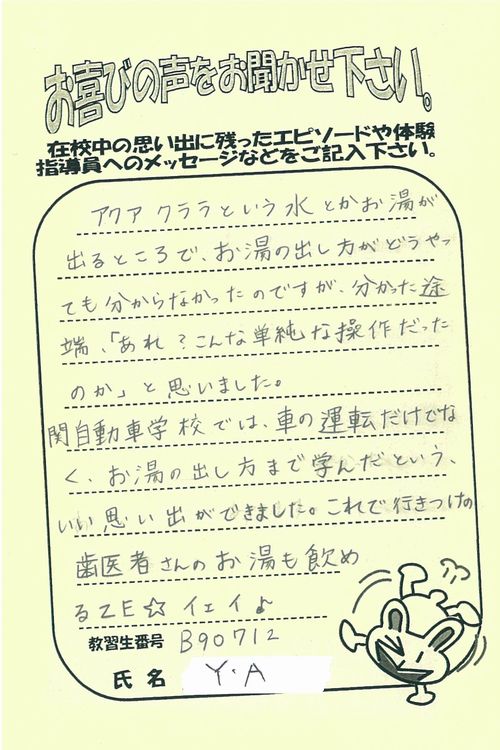 お喜びの声をお聞かせ下さい。
在校中の思い出に残ったエピソードや体験
指導員へのメッセージなどをご記入下さい。
アクアクララという水とかお湯が
出るところで、お湯の出し方がどうやっ
ても分からなかったのですが、分かった途
端、「あれ?こんな単純な操作だった
のか」と思いました。
関自動車学校では、車の運転だけでな
く、お湯の出し方まで学んだという、
いい思い出ができました。これで行きつけの
歯医者さんのお湯も飲め
るZE☆イェイ♪
教習生番号 B90712
氏名 Y・A